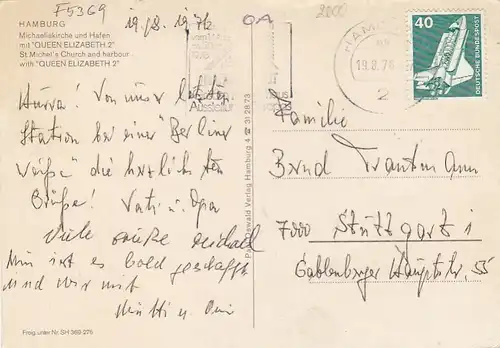 F5369
HAMBURG
19.8.76
Michaeliskirche und Hafen
mit "QUEEN ELIZABETH 2"
St. Michel's Church and harbour
with "QUEEN ELIZABETH 2"
40
DEUTSCHE BUNDESPOST
19.8.76
2
Hurra! Von unser letzten
Station bei einer "Berliner
Weiße" die herzlichsten
Grüße! Vati u. Opa
Viele Grüße Michael
Nun ist es bald geschafft
und wir mit
Mutti u. Omi
Familie
Bernd Trautmann
7000 Stuttgart 1
Gablenberger Hauptstr. 55
Verlag Hamburg 4 ☎ 31 28 73
Freig. unter Nr. SH 360-276